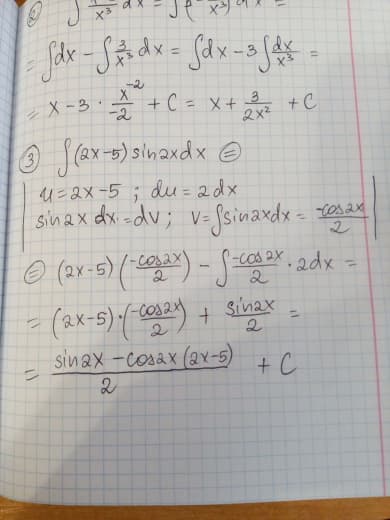 ② ∫ x³ dx = ∫( x³) dx =
= ∫dx - ∫ 3/x³ dx = ∫dx - 3 ∫ dx/x³ =
= x - 3 · x⁻²/-2 + C = x + 3/2x² + C
③ ∫(2x-5) sin2xdx ⊜
u = 2x-5 ; du = 2dx
sin2x dx = dv ; v = ∫sin2xdx = -cos2x/2
⊜ (2x-5) (-cos2x/2) - ∫ -cos2x/2 · 2dx =
= (2x-5)·(-cos2x/2) + sin2x/2 =
= sin2x - cos2x (2x-5)/2 + C